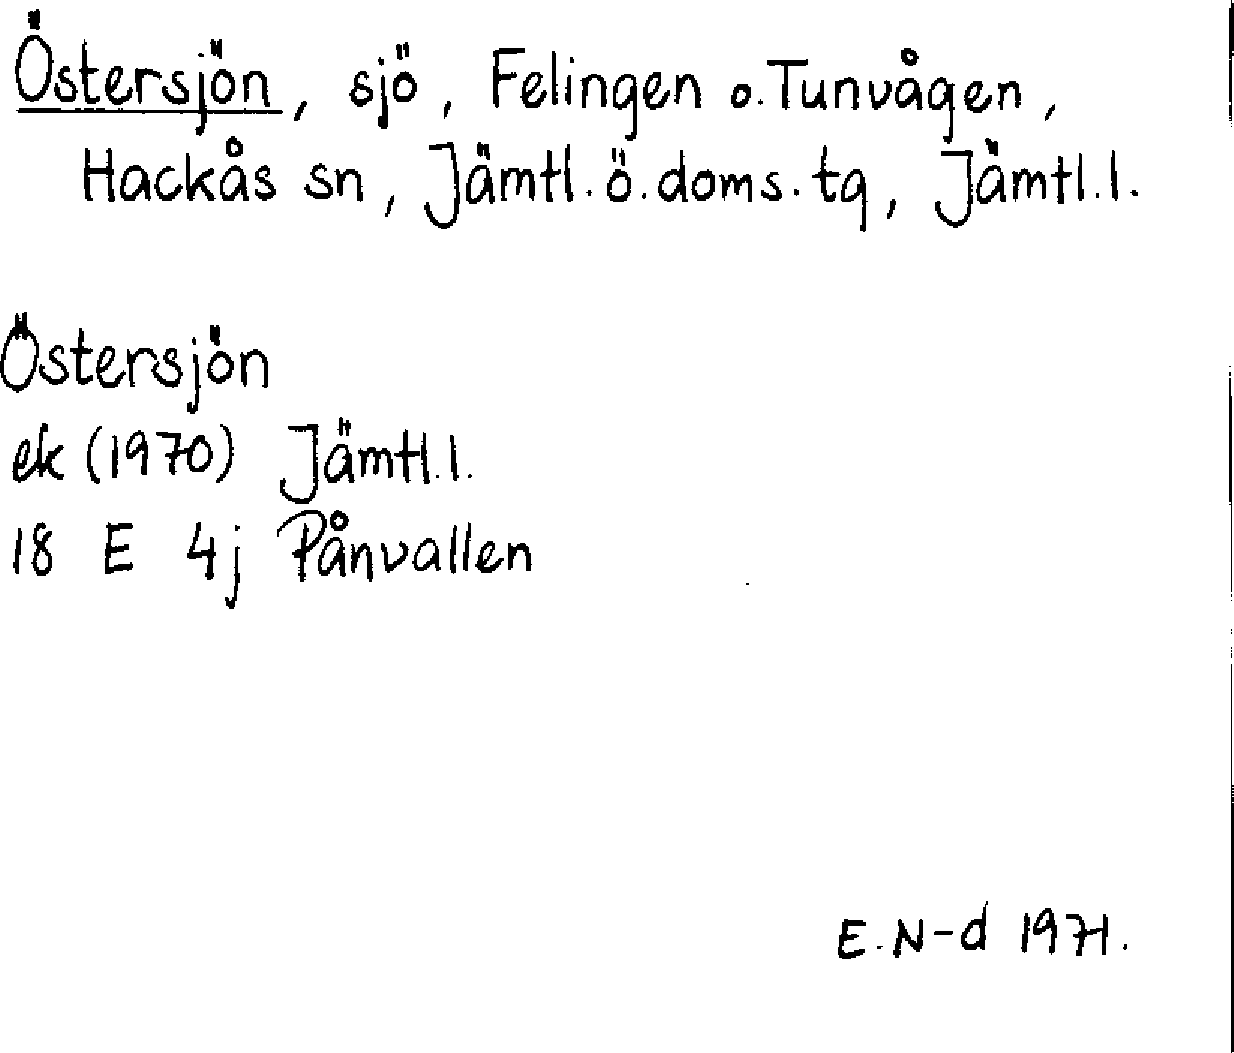 Östersjön, sjö, Felingen o. Tunvågen,
Hackås sn, Jämtl. ö. doms. tg, Jämtl. l.
Östersjön
ek (1970) Jämtl. l.
18 E 4j Pånvallen
E. N-d 1971.